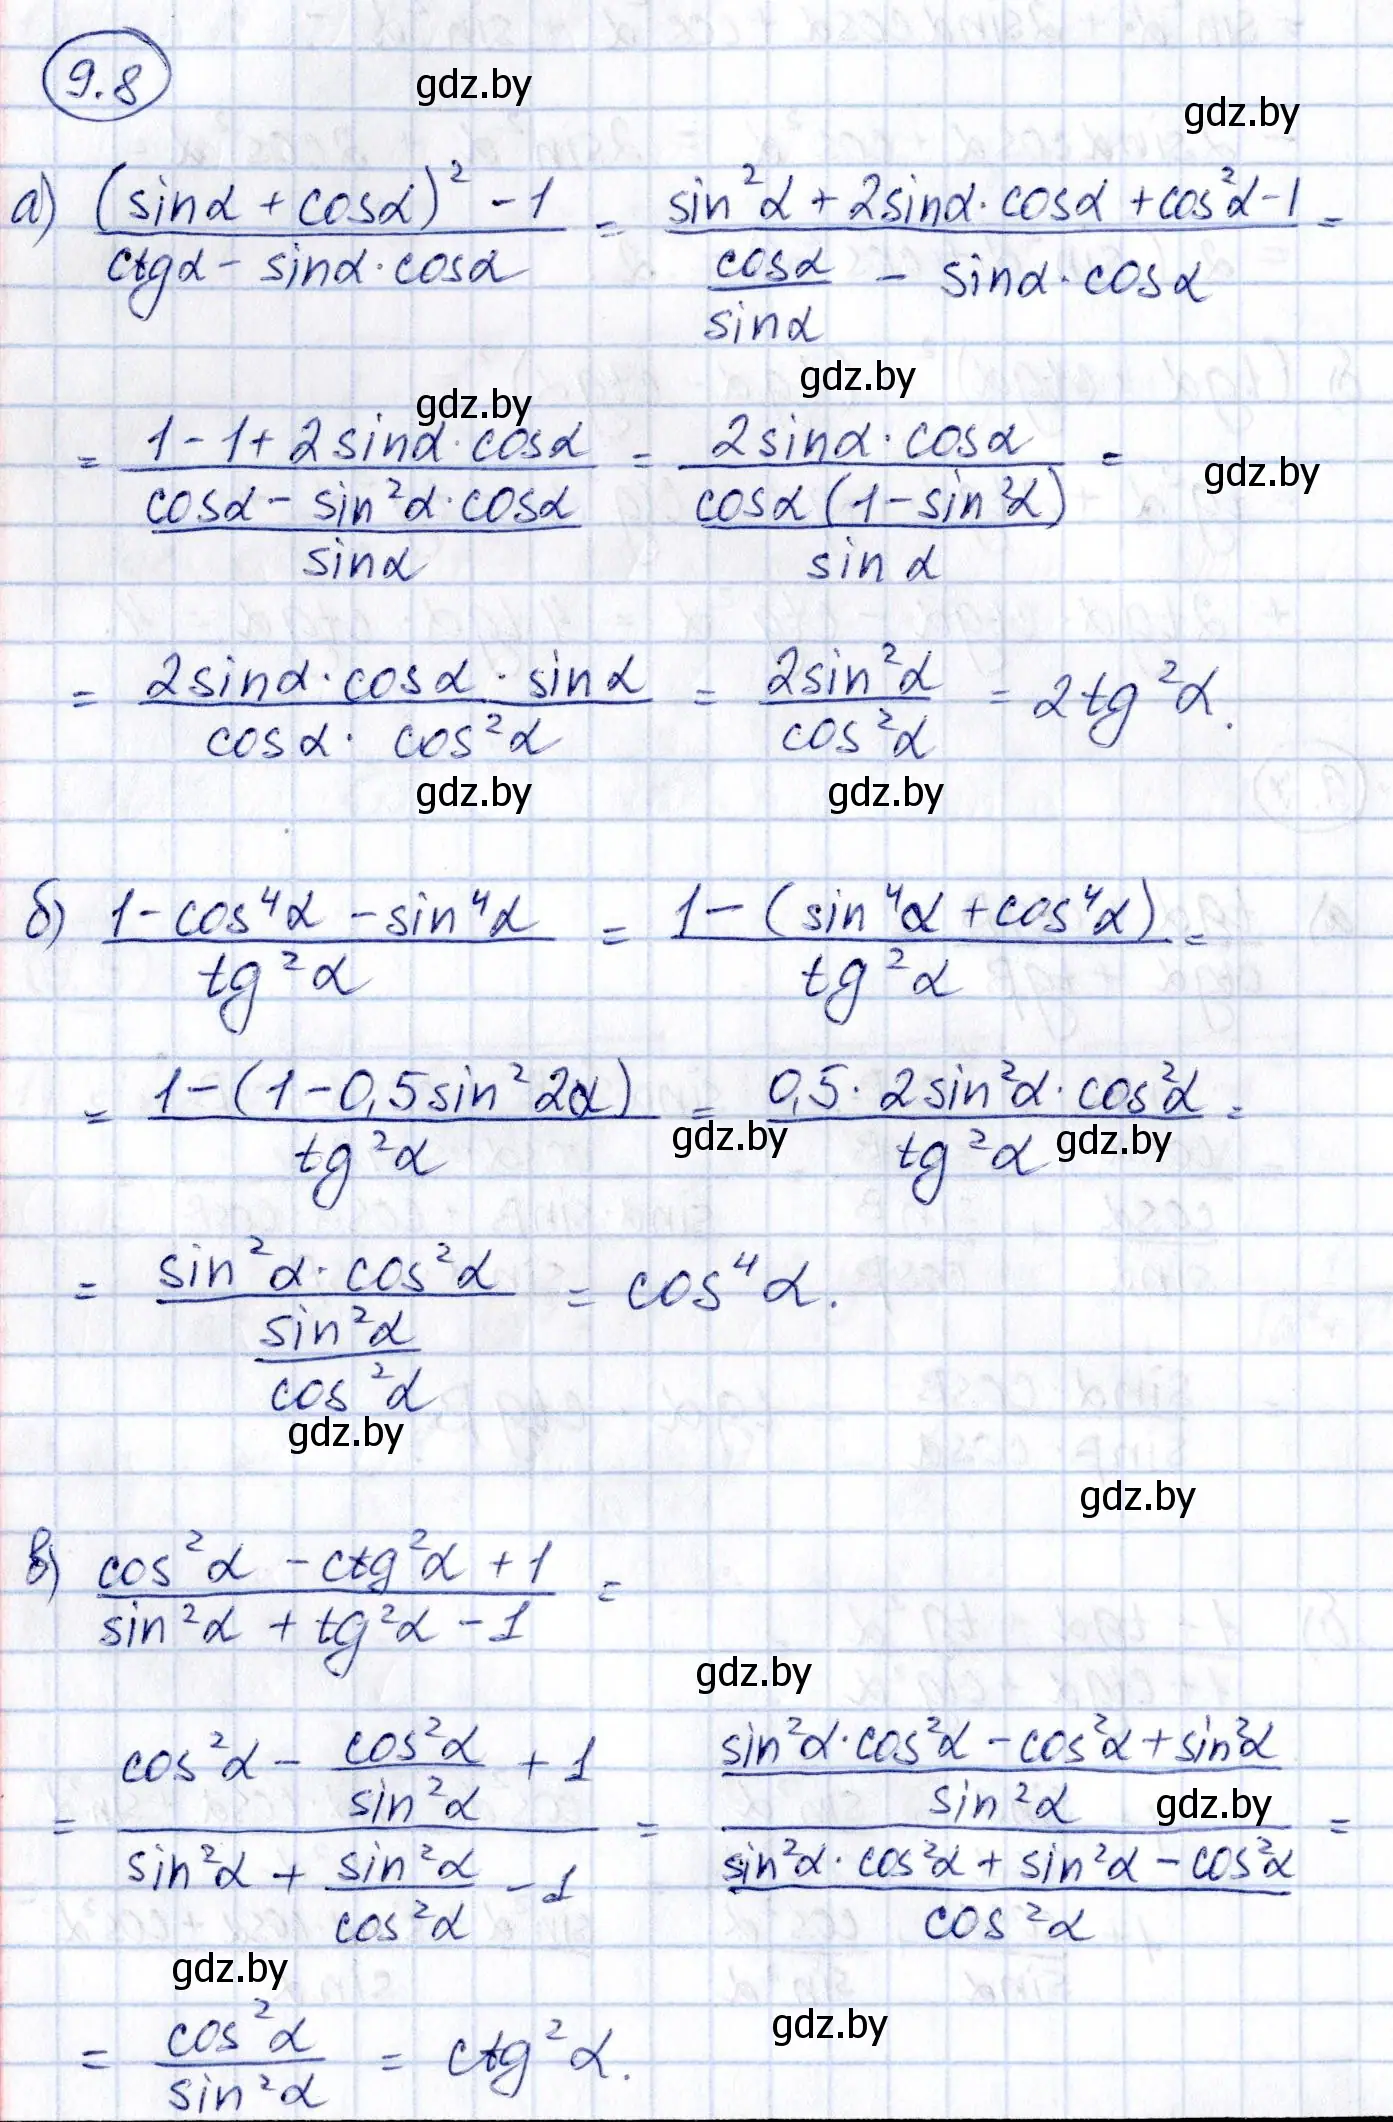 9.8
gdz.by
gdz.by
а) ((sinα + cosα)² - 1)/(ctgα - sinα·cosα) = (sin²α + 2sinα·cosα + cos²α - 1)/(cosα/sinα - sinα·cosα) =
gdz.by
gdz.by
= (1 - 1 + 2sinα·cosα)/((cosα - sin²α·cosα)/sinα) = (2sinα·cosα)/((cosα(1 - sin²α))/sinα) =
gdz.by
= (2sinα·cosα·sinα)/(cosα·cos²α) = (2sin²α)/(cos²α) = 2tg²α.
gdz.by
gdz.by
б) (1 - cos⁴α - sin⁴α)/(tg²α) = (1 - (sin⁴α + cos⁴α))/(tg²α) =
= (1 - (1 - 0,5sin²2α))/(tg²α) = (0,5·2sin²α·cos²α)/(tg²α) =
gdz.by
gdz.by
= (sin²α·cos²α)/(sin²α/cos²α) = cos⁴α.
gdz.by
gdz.by
в) (cos²α - ctg²α + 1)/(sin²α + tg²α - 1) =
gdz.by
= (cos²α - cos²α/sin²α + 1)/(sin²α + sin²α/cos²α - 1) = ((sin²α·cos²α - cos²α + sin²α)/sin²α)/((sin²α·cos²α + sin²α - cos²α)/cos²α) =
gdz.by
gdz.by
= cos²α/sin²α = ctg²α.
gdz.by